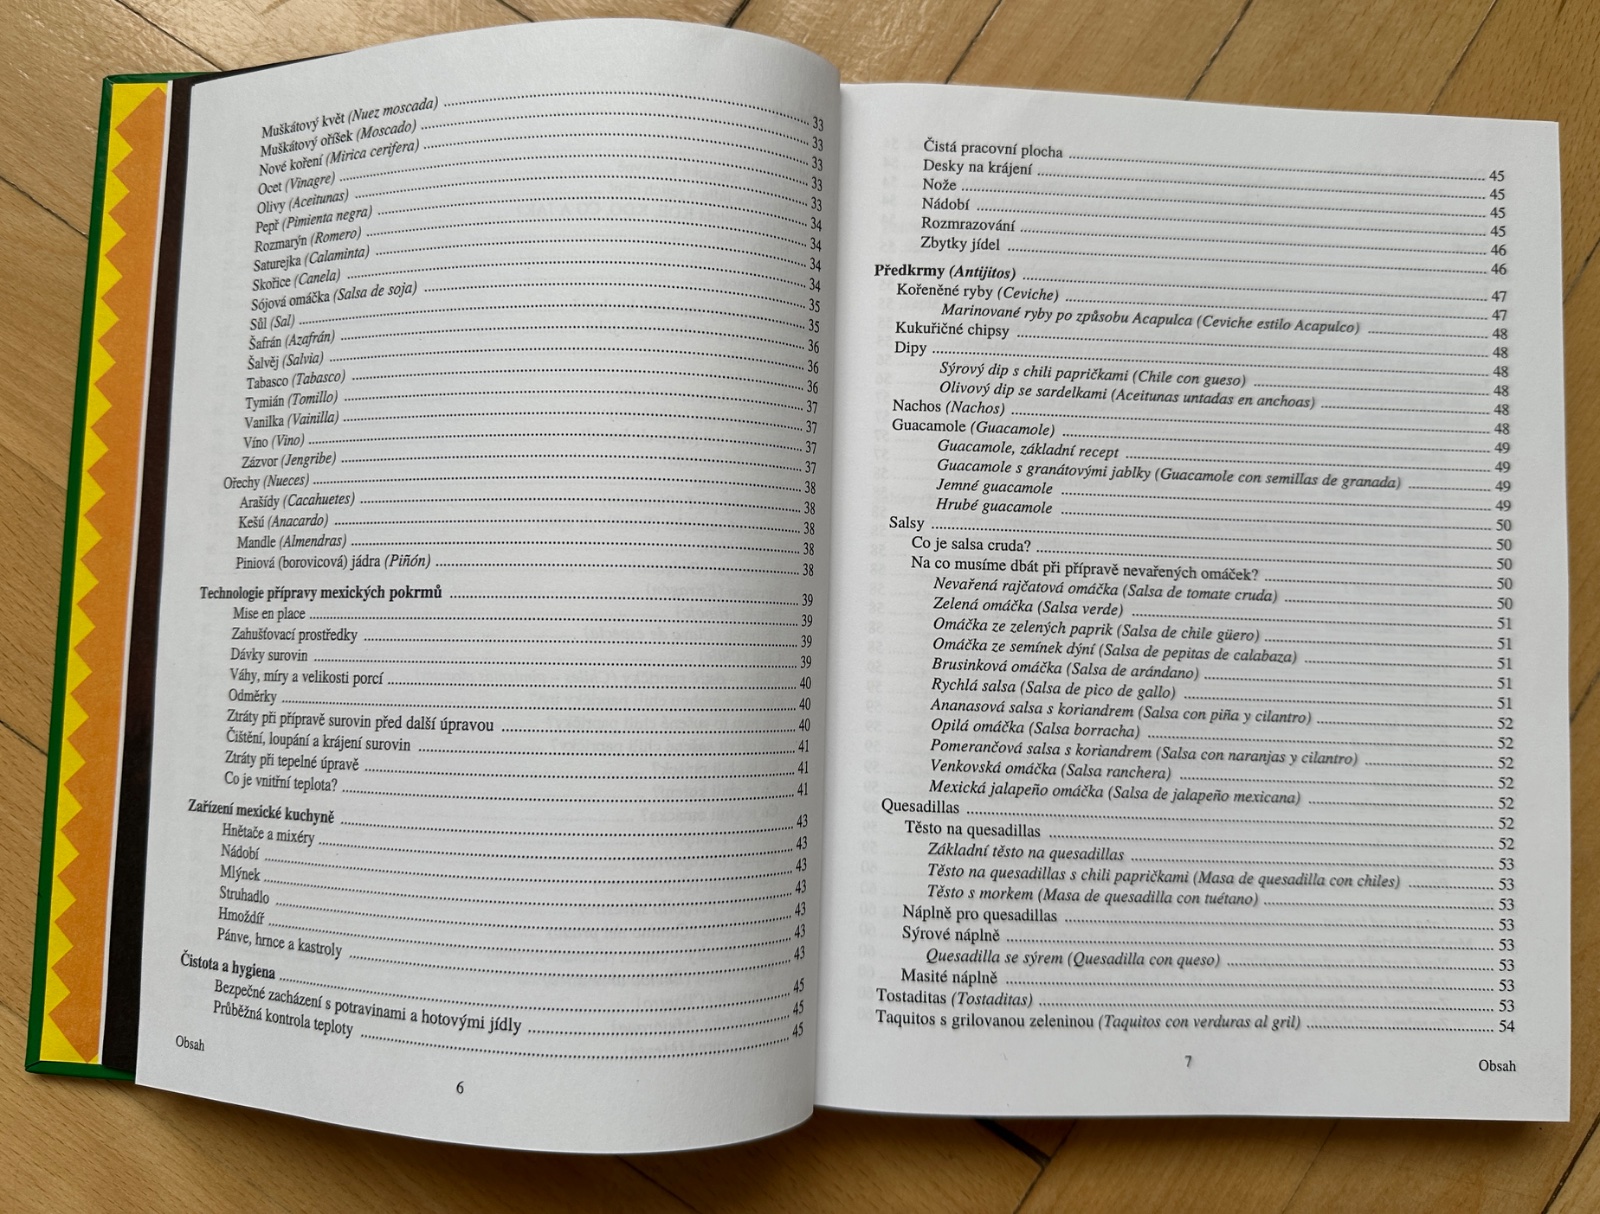 Muškátový květ (Nuez moscada) ........ 33
Muškátový oříšek (Moscado) ........ 33
Nové koření (Mirica cerifera) ........ 33
Ocet (Vinagre) ........ 33
Olivy (Aceitunas) ........ 33
Pepř (Pimienta negra) ........ 34
Rozmarýn (Romero) ........ 34
Saturejka (Calaminta) ........ 34
Skořice (Canela) ........ 34
Sójová omáčka (Salsa de soja) ........ 35
Sůl (Sal) ........ 35
Šafrán (Azafrán) ........ 36
Šalvěj (Salvia) ........ 36
Tabasco (Tabasco) ........ 36
Tymián (Tomillo) ........ 37
Vanilka (Vainilla) ........ 37
Víno (Vino) ........ 37
Zázvor (Jengribe) ........ 37
Ořechy (Nueces) ........ 38
Arašídy (Cacahuetes) ........ 38
Kešú (Anacardo) ........ 38
Mandle (Almendras) ........ 38
Piniová (borovicová) jádra (Piñón) ........ 38
Technologie přípravy mexických pokrmů ........ 39
Mise en place ........ 39
Zahušťovací prostředky ........ 39
Dávky surovin ........ 39
Váhy, míry a velikosti porcí ........ 40
Odměrky ........ 40
Ztráty při přípravě surovin před další úpravou ........ 40
Čištění, loupání a krájení surovin ........ 41
Ztráty při tepelné úpravě ........ 41
Co je vnitřní teplota? ........ 41
Zařízení mexické kuchyně ........ 43
Hnětače a mixéry ........ 43
Nádobí ........ 43
Mlýnek ........ 43
Struhadlo ........ 43
Hmoždíř ........ 43
Pánve, hrnce a kastroly ........ 43
Čistota a hygiena ........ 45
Bezpečné zacházení s potravinami a hotovými jídly ........ 45
Průběžná kontrola teploty ........ 45
Obsah
6
Čistá pracovní plocha ........ 45
Desky na krájení ........ 45
Nože ........ 45
Nádobí ........ 45
Rozmrazování ........ 46
Zbytky jídel ........ 46
Předkrmy (Antijitos) ........ 47
Kořeněné ryby (Ceviche) ........ 47
Marinované ryby po způsobu Acapulca (Ceviche estilo Acapulco) ........ 48
Kukuřičné chipsy ........ 48
Dipy ........ 48
Sýrový dip s chili papričkami (Chile con gueso) ........ 48
Olivový dip se sardelkami (Aceitunas untadas en anchoas) ........ 48
Nachos (Nachos) ........ 48
Guacamole (Guacamole) ........ 49
Guacamole, základní recept ........ 49
Guacamole s granátovými jablky (Guacamole con semillas de granada) ........ 49
Jemné guacamole ........ 49
Hrubé guacamole ........ 50
Salsy ........ 50
Co je salsa cruda? ........ 50
Na co musíme dbát při přípravě nevařených omáček? ........ 50
Nevařená rajčatová omáčka (Salsa de tomate cruda) ........ 50
Zelená omáčka (Salsa verde) ........ 51
Omáčka ze zelených paprik (Salsa de chile güero) ........ 51
Omáčka ze semínek dýní (Salsa de pepitas de calabaza) ........ 51
Brusinková omáčka (Salsa de arándano) ........ 51
Rychlá salsa (Salsa de pico de gallo) ........ 51
Ananasová salsa s koriandrem (Salsa con piña y cilantro) ........ 52
Opilá omáčka (Salsa borracha) ........ 52
Pomerančová salsa s koriandrem (Salsa con naranjas y cilantro) ........ 52
Venkovská omáčka (Salsa ranchera) ........ 52
Mexická jalapeño omáčka (Salsa de jalapeño mexicana) ........ 52
Quesadillas ........ 52
Těsto na quesadillas ........ 52
Základní těsto na quesadillas ........ 53
Těsto na quesadillas s chili papričkami (Masa de quesadilla con chiles) ........ 53
Těsto s morkem (Masa de quesadilla con tuétano) ........ 53
Náplně pro quesadillas ........ 53
Sýrové náplně ........ 53
Quesadilla se sýrem (Quesadilla con queso) ........ 53
Masité náplně ........ 53
Tostaditas (Tostaditas) ........ 53
Taquitos s grilovanou zeleninou (Taquitos con verduras al gril) ........ 54
7
Obsah